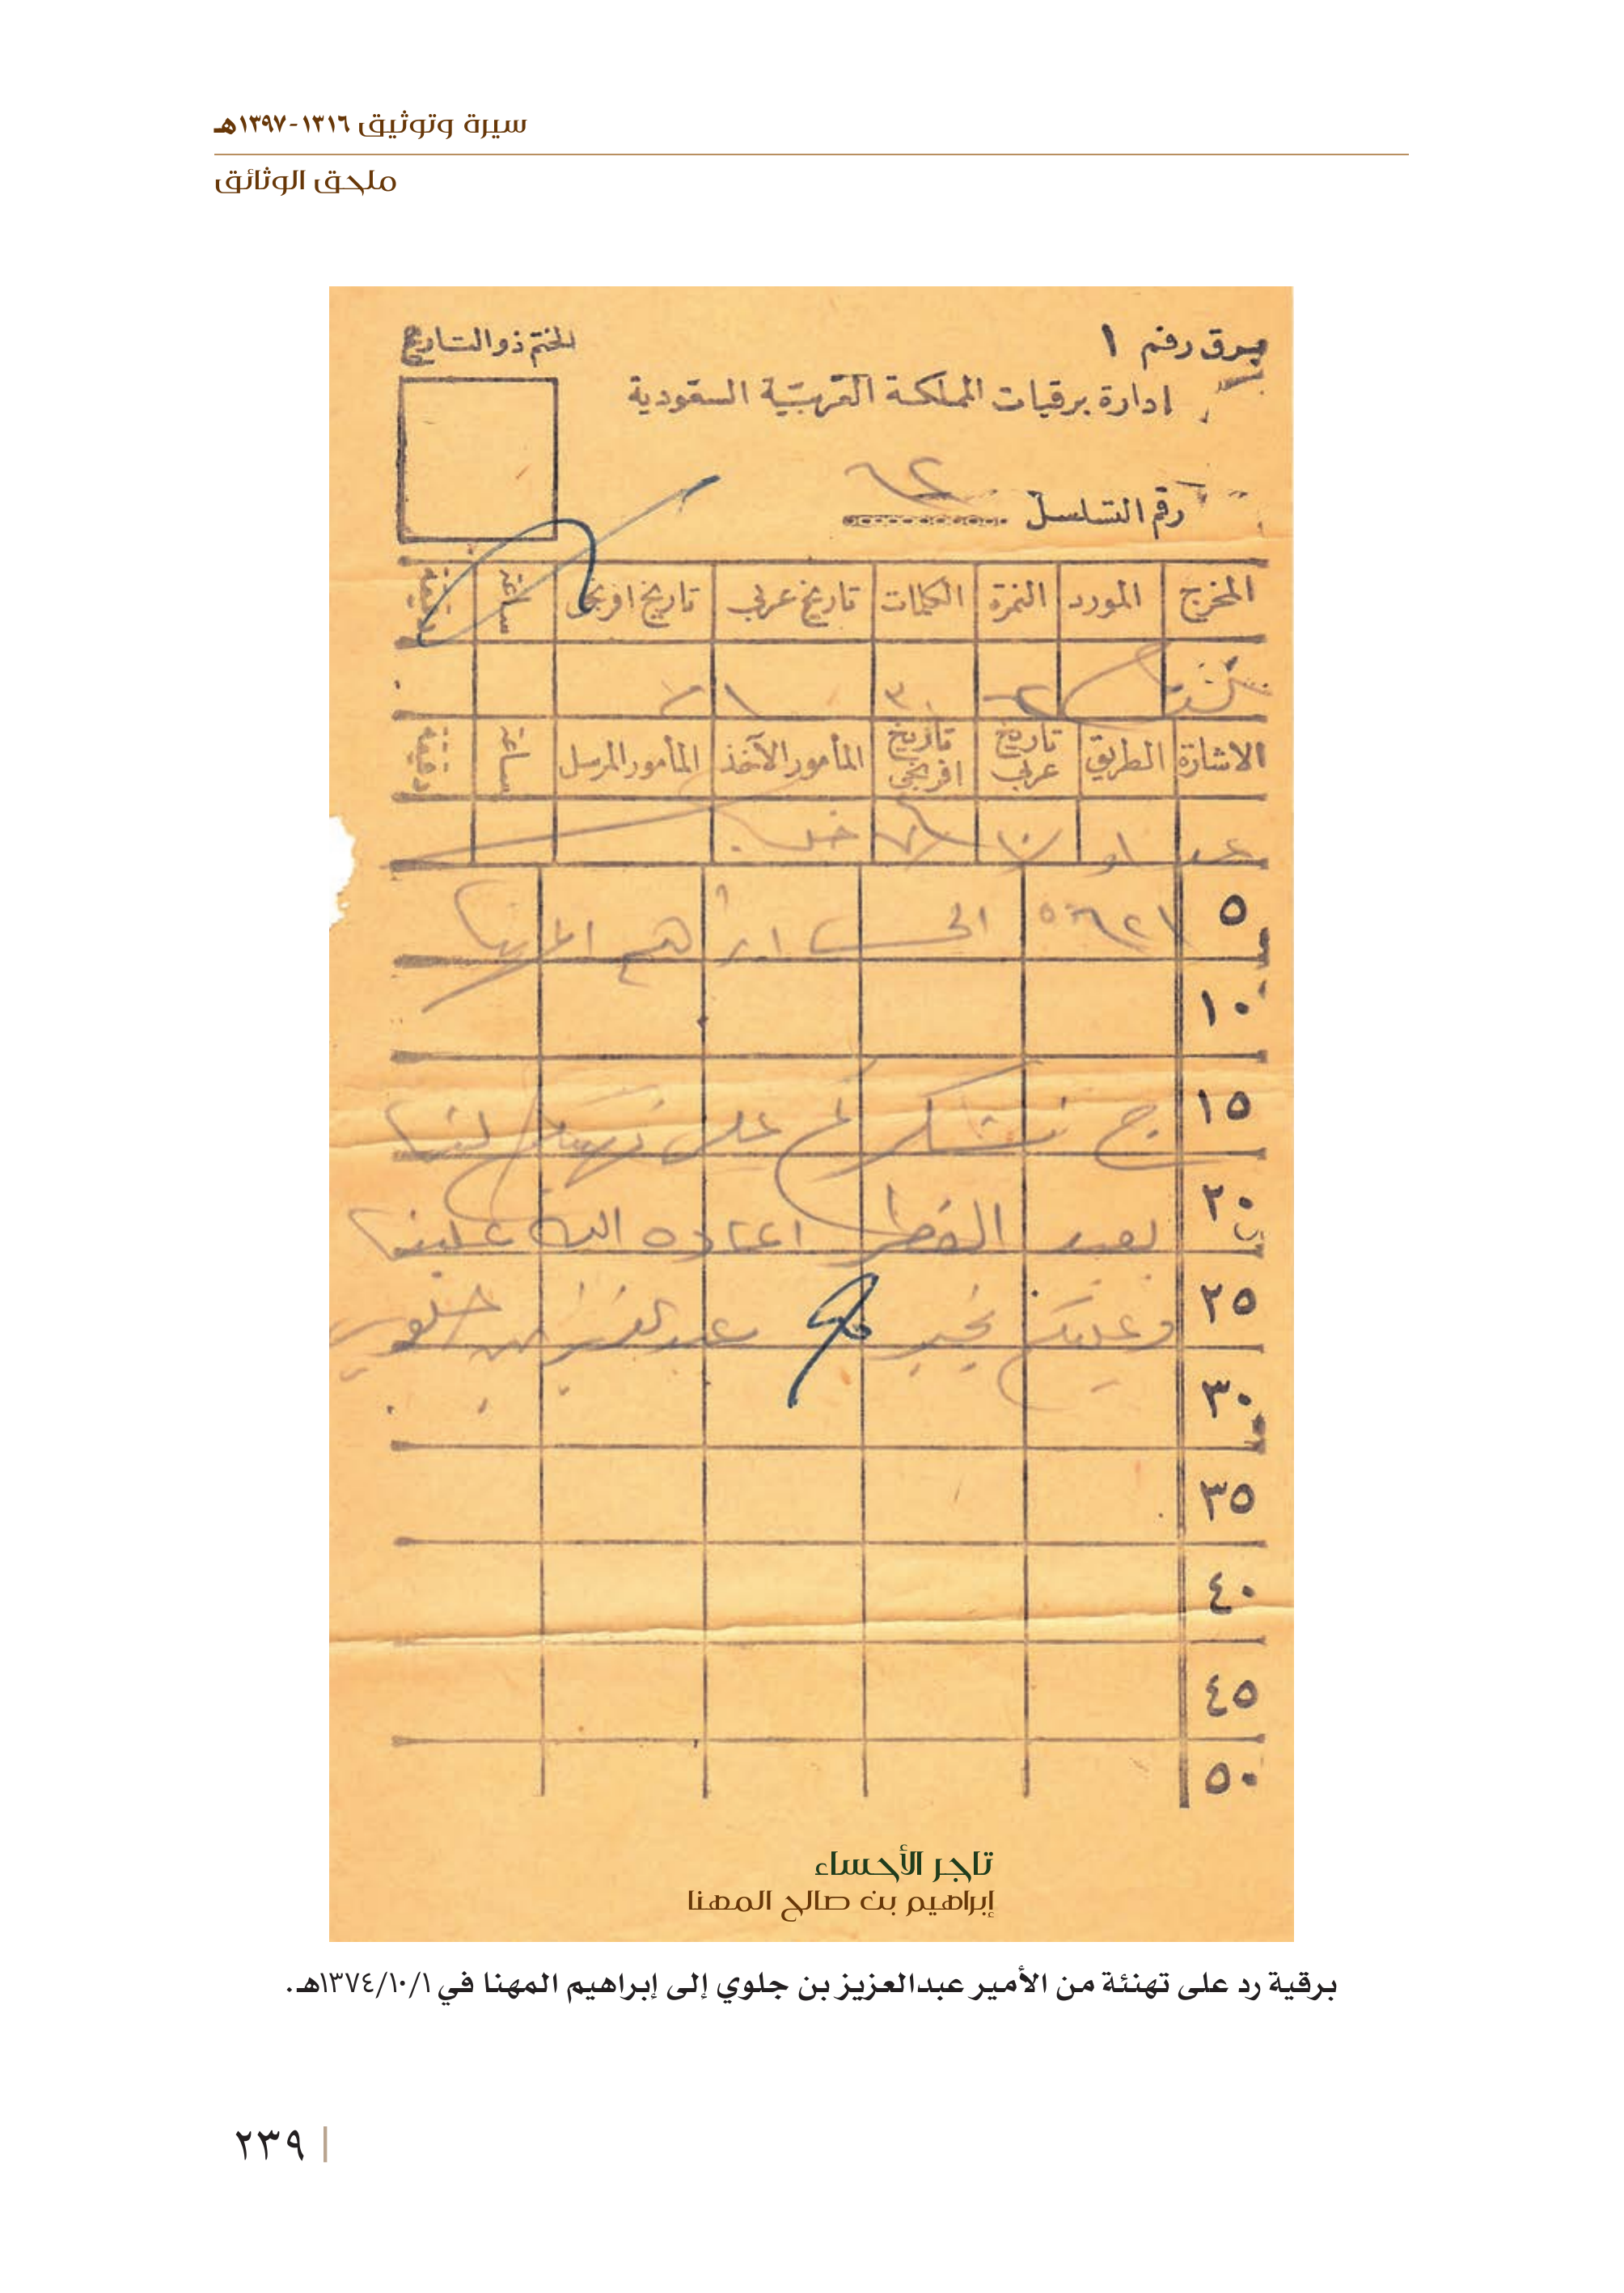 سيرة وتوثيق ١٣١٦-١٣٩٧هـ
ملحق الوثائق
برق رقم ١
الختم ذو التاريخ
ادارة برقيات المملكة العربية السعودية
رقم التسلسل ٦٢
المخرج المورد النمرة الكلمات تاريخ عربي تاريخ افرنجي ساعة دقيقة
الاشارة الطريق تاريخ عربي تاريخ افرنجي المأمور الآخذ المأمور المرسل ساعة دقيقة
٥ الحسا ابراهيم المهنا
١٠
١٥ ج نشكركم على تهنئتكم لنا
٢٠ بعيد الفطر اعاده الله علينا
٢٥ وعليكم بخير عبدالعزيز بن جلوي
٣٠
٣٥
٤٠
٤٥
٥٠
تاجر الأحساء
إبراهيم بن صالح المهنا
برقية رد على تهنئة من الأمير عبدالعزيز بن جلوي إلى إبراهيم المهنا في ١٣٧٤/١٠/١هـ.
٢٣٩